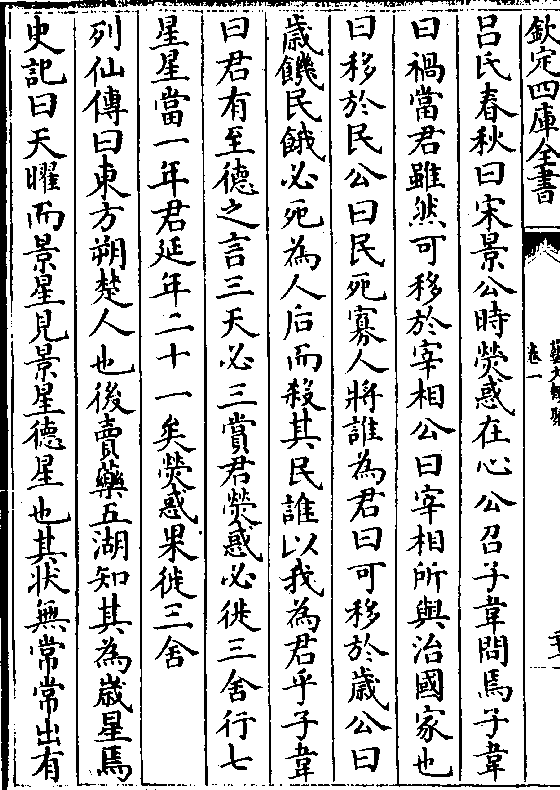 欽定四庫全書
卷一
呂氏春秋曰宋景公時熒惑在心公召子韋問焉子韋
曰禍當君雖然可移於宰相公曰宰相所與治國家也
曰移於民公曰民死寡人將誰為君曰可移於歲公曰
歲饑民餓必死為人后而殺其民誰以我為君乎子韋
曰君有至德之言三天必三賞君熒惑必徙三舍行七
星星當一年君延年二十一矣熒惑果徙三舍
列仙傳曰東方朔楚人也後賣藥五湖知其為歲星焉
史記曰天曜而景星見景星德星也其狀無常常出有